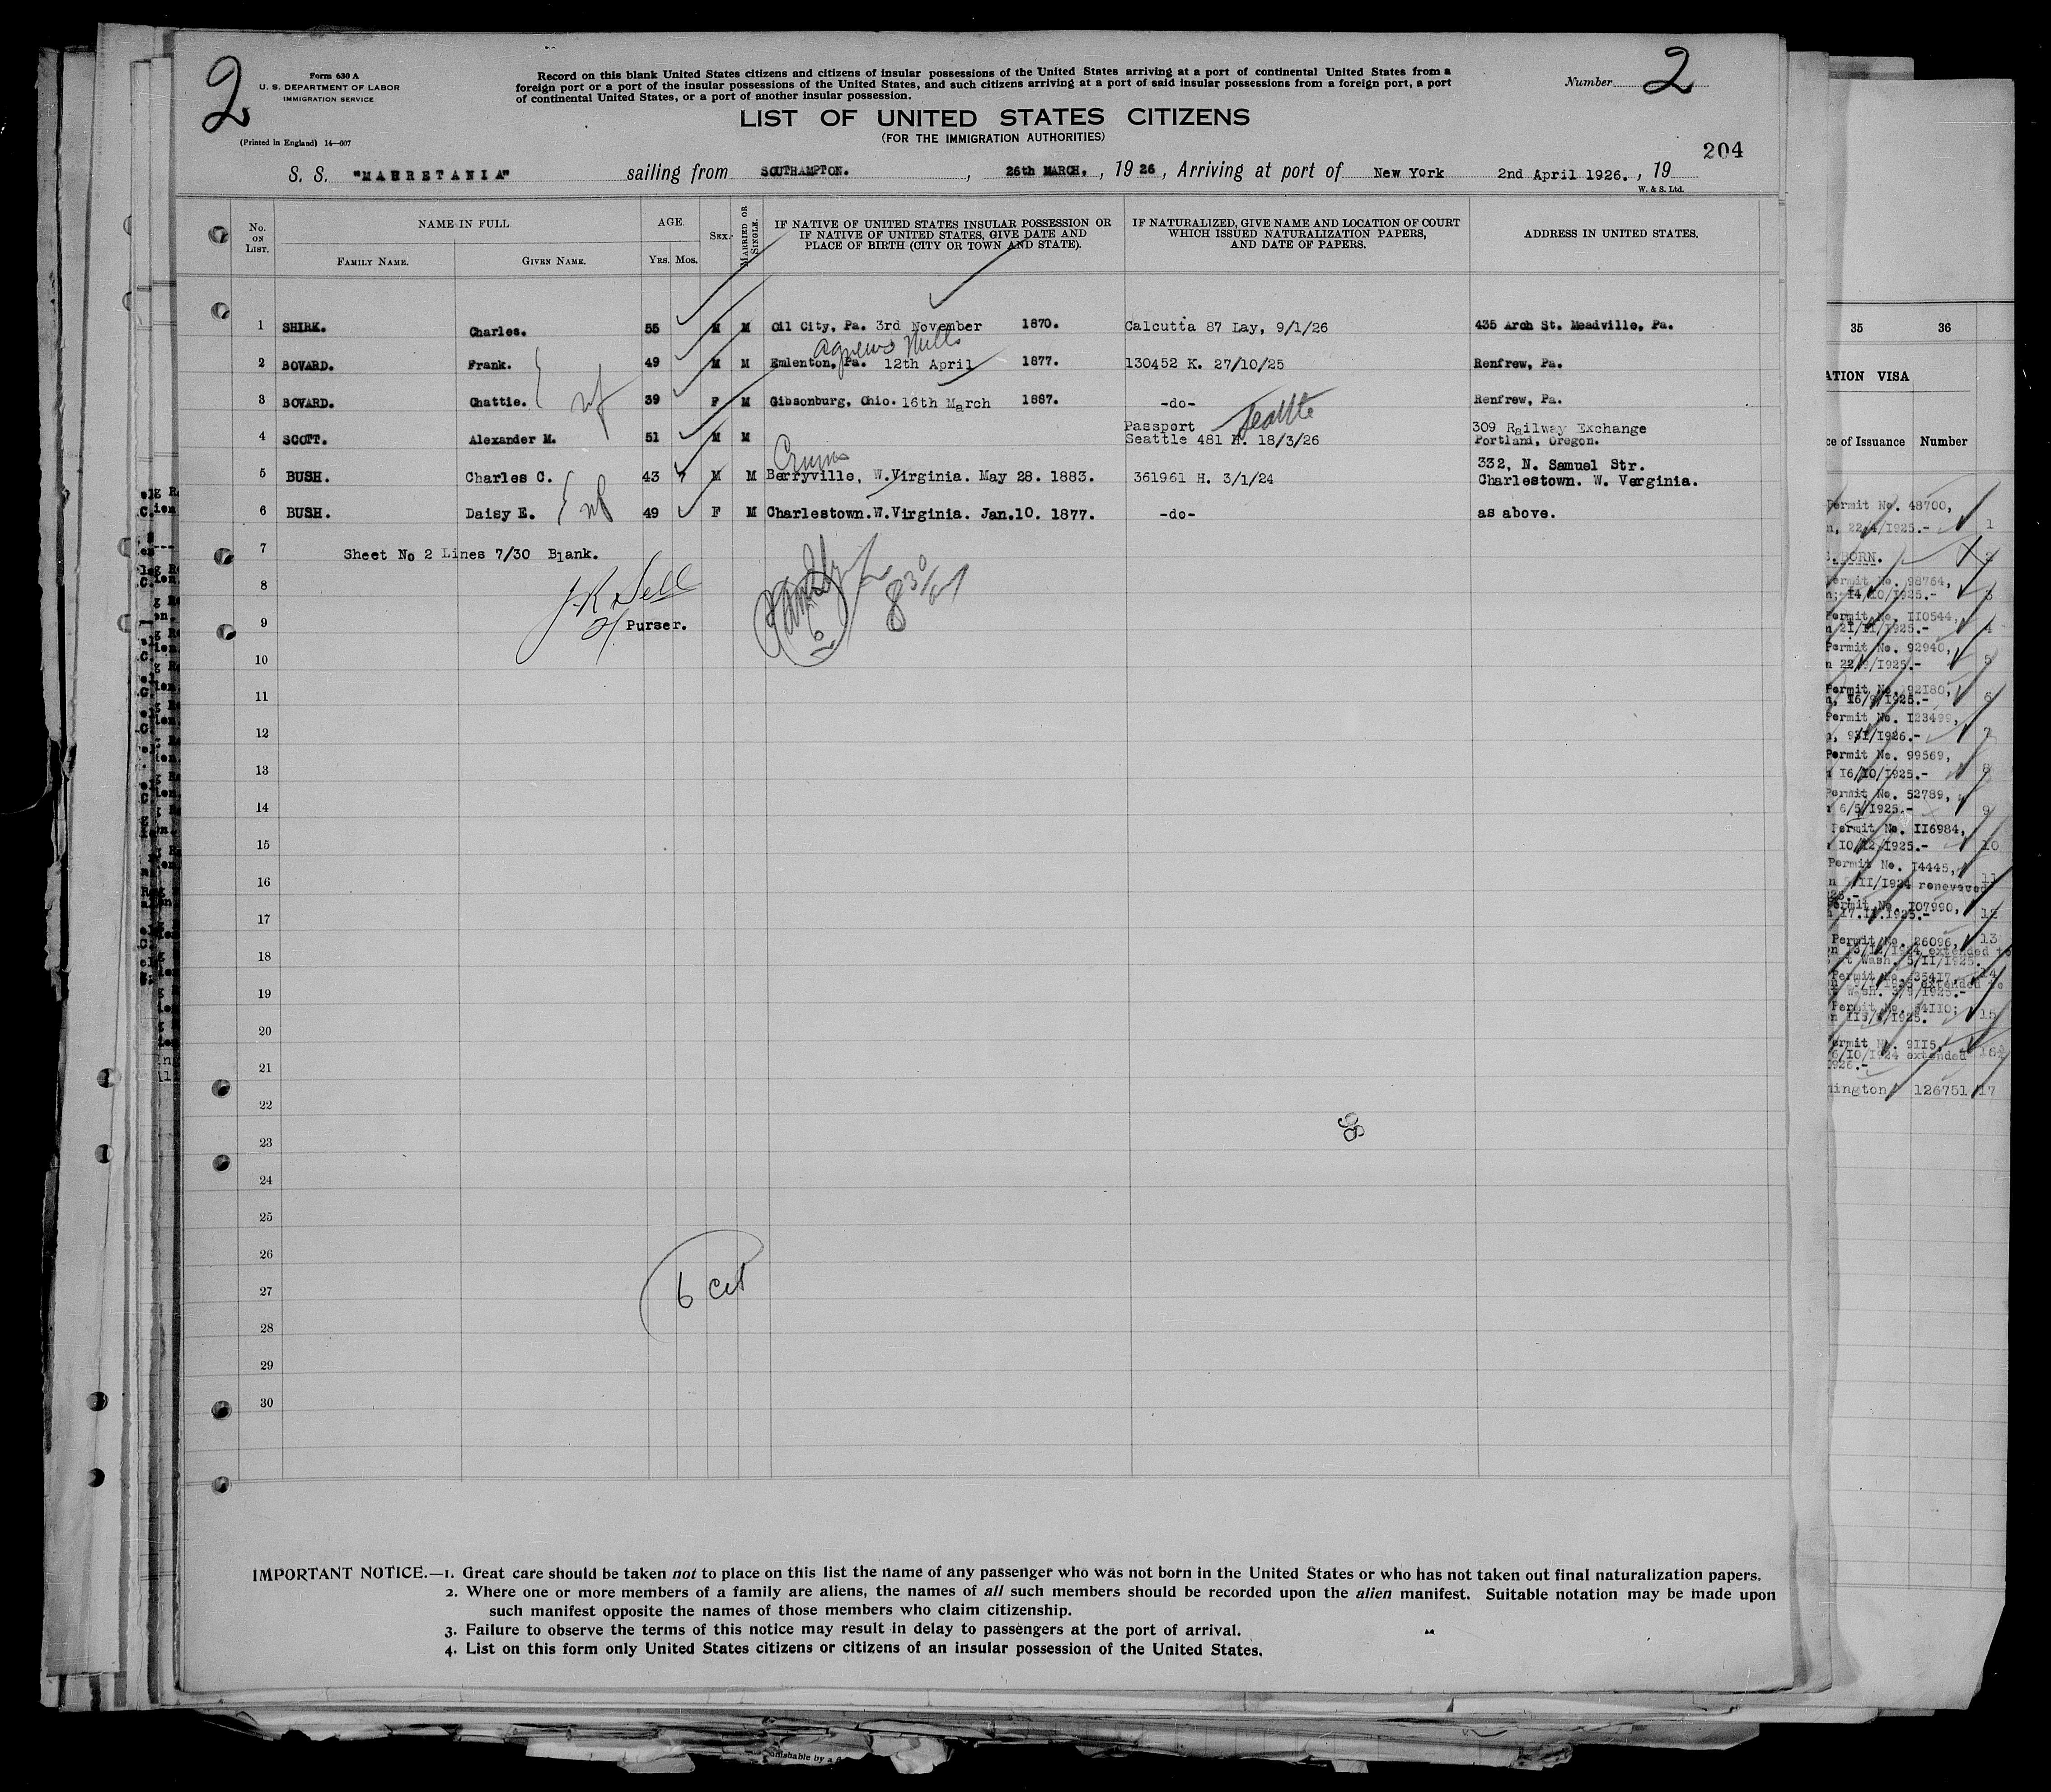 2
Form 630 A
U. S. DEPARTMENT OF LABOR
IMMIGRATION SERVICE
(Printed in England) 14—607
Record on this blank United States citizens and citizens of insular possessions of the United States arriving at a port of continental United States from a
foreign port or a port of the insular possessions of the United States, and such citizens arriving at a port of said insular possessions from a foreign port, a port
of continental United States, or a port of another insular possession.
Number 2
LIST OF UNITED STATES CITIZENS
(FOR THE IMMIGRATION AUTHORITIES)
204
S. S. "MAURETANIA" sailing from SOUTHAMPTON. , 26th MARCH. , 1926 , Arriving at port of New York 2nd April 1926. , 19
W. & S. Ltd.
No. ON LIST. NAME IN FULL AGE. SEX. MARRIED OR SINGLE. IF NATIVE OF UNITED STATES INSULAR POSSESSION OR IF NATIVE OF UNITED STATES, GIVE DATE AND PLACE OF BIRTH (CITY OR TOWN AND STATE). IF NATURALIZED, GIVE NAME AND LOCATION OF COURT WHICH ISSUED NATURALIZATION PAPERS, AND DATE OF PAPERS. ADDRESS IN UNITED STATES.
FAMILY NAME. GIVEN NAME. YRS. MOS.
1 SHIRK. Charles. 55 M M Oil City, Pa. 3rd November 1870. Calcutta 87 Lay, 9/1/26 435 Arch St. Meadville, Pa.
Agnews Mills
2 BOVARD. Frank. 49 M M Emlenton, Pa. 12th April 1877. 130452 K. 27/10/25 Renfrew, Pa.
3 BOVARD. Chattie. 39 F M Gibsonburg, Ohio. 16th March 1887. -do- Renfrew, Pa.
Seattle
4 SCOTT. Alexander M. 51 M M Passport Seattle 481 H. 18/3/26 309 Railway Exchange Portland, Oregon.
5 BUSH. Charles C. 43 M M Berryville, W.Virginia. May 28. 1883. 361961 H. 3/1/24 332, N. Samuel Str. Charlestown. W. Verginia.
6 BUSH. Daisy E. 49 F M Charlestown.W.Virginia. Jan.10. 1877. -do- as above.
7 Sheet No 2 Lines 7/30 Blank.
8
9 Purser.
10
11
12
13
14
15
16
17
18
19
20
21
22
23
24
25
26
27
28
29
30
IMPORTANT NOTICE.—1. Great care should be taken not to place on this list the name of any passenger who was not born in the United States or who has not taken out final naturalization papers.
2. Where one or more members of a family are aliens, the names of all such members should be recorded upon the alien manifest. Suitable notation may be made upon
such manifest opposite the names of those members who claim citizenship.
3. Failure to observe the terms of this notice may result in delay to passengers at the port of arrival.
4. List on this form only United States citizens or citizens of an insular possession of the United States.
35 36
ATION VISA
ce of Issuance Number
Permit No. 48700,
22/4/1925.- 1
BORN.
Permit No. 98764,
14/10/1925.- 3
Permit No. II0544,
21/11/1925.- 4
Permit No. 92940,
5
Permit No. 92180,
16/9/1925.- 6
Permit No. I23499,
7
Permit No. 99569,
16/10/1925.- 8
Permit No. 52789,
6/5/1925.- 9
Permit No. II6984,
10/12/1925.- 10
Permit No. I4445,
11
Permit No. I07990,
17.11.1925.- 12
Permit No. 26096, 13
14
15
Permit No. 9II5,
6/10/1924 extended 16
1926.-
126751 17